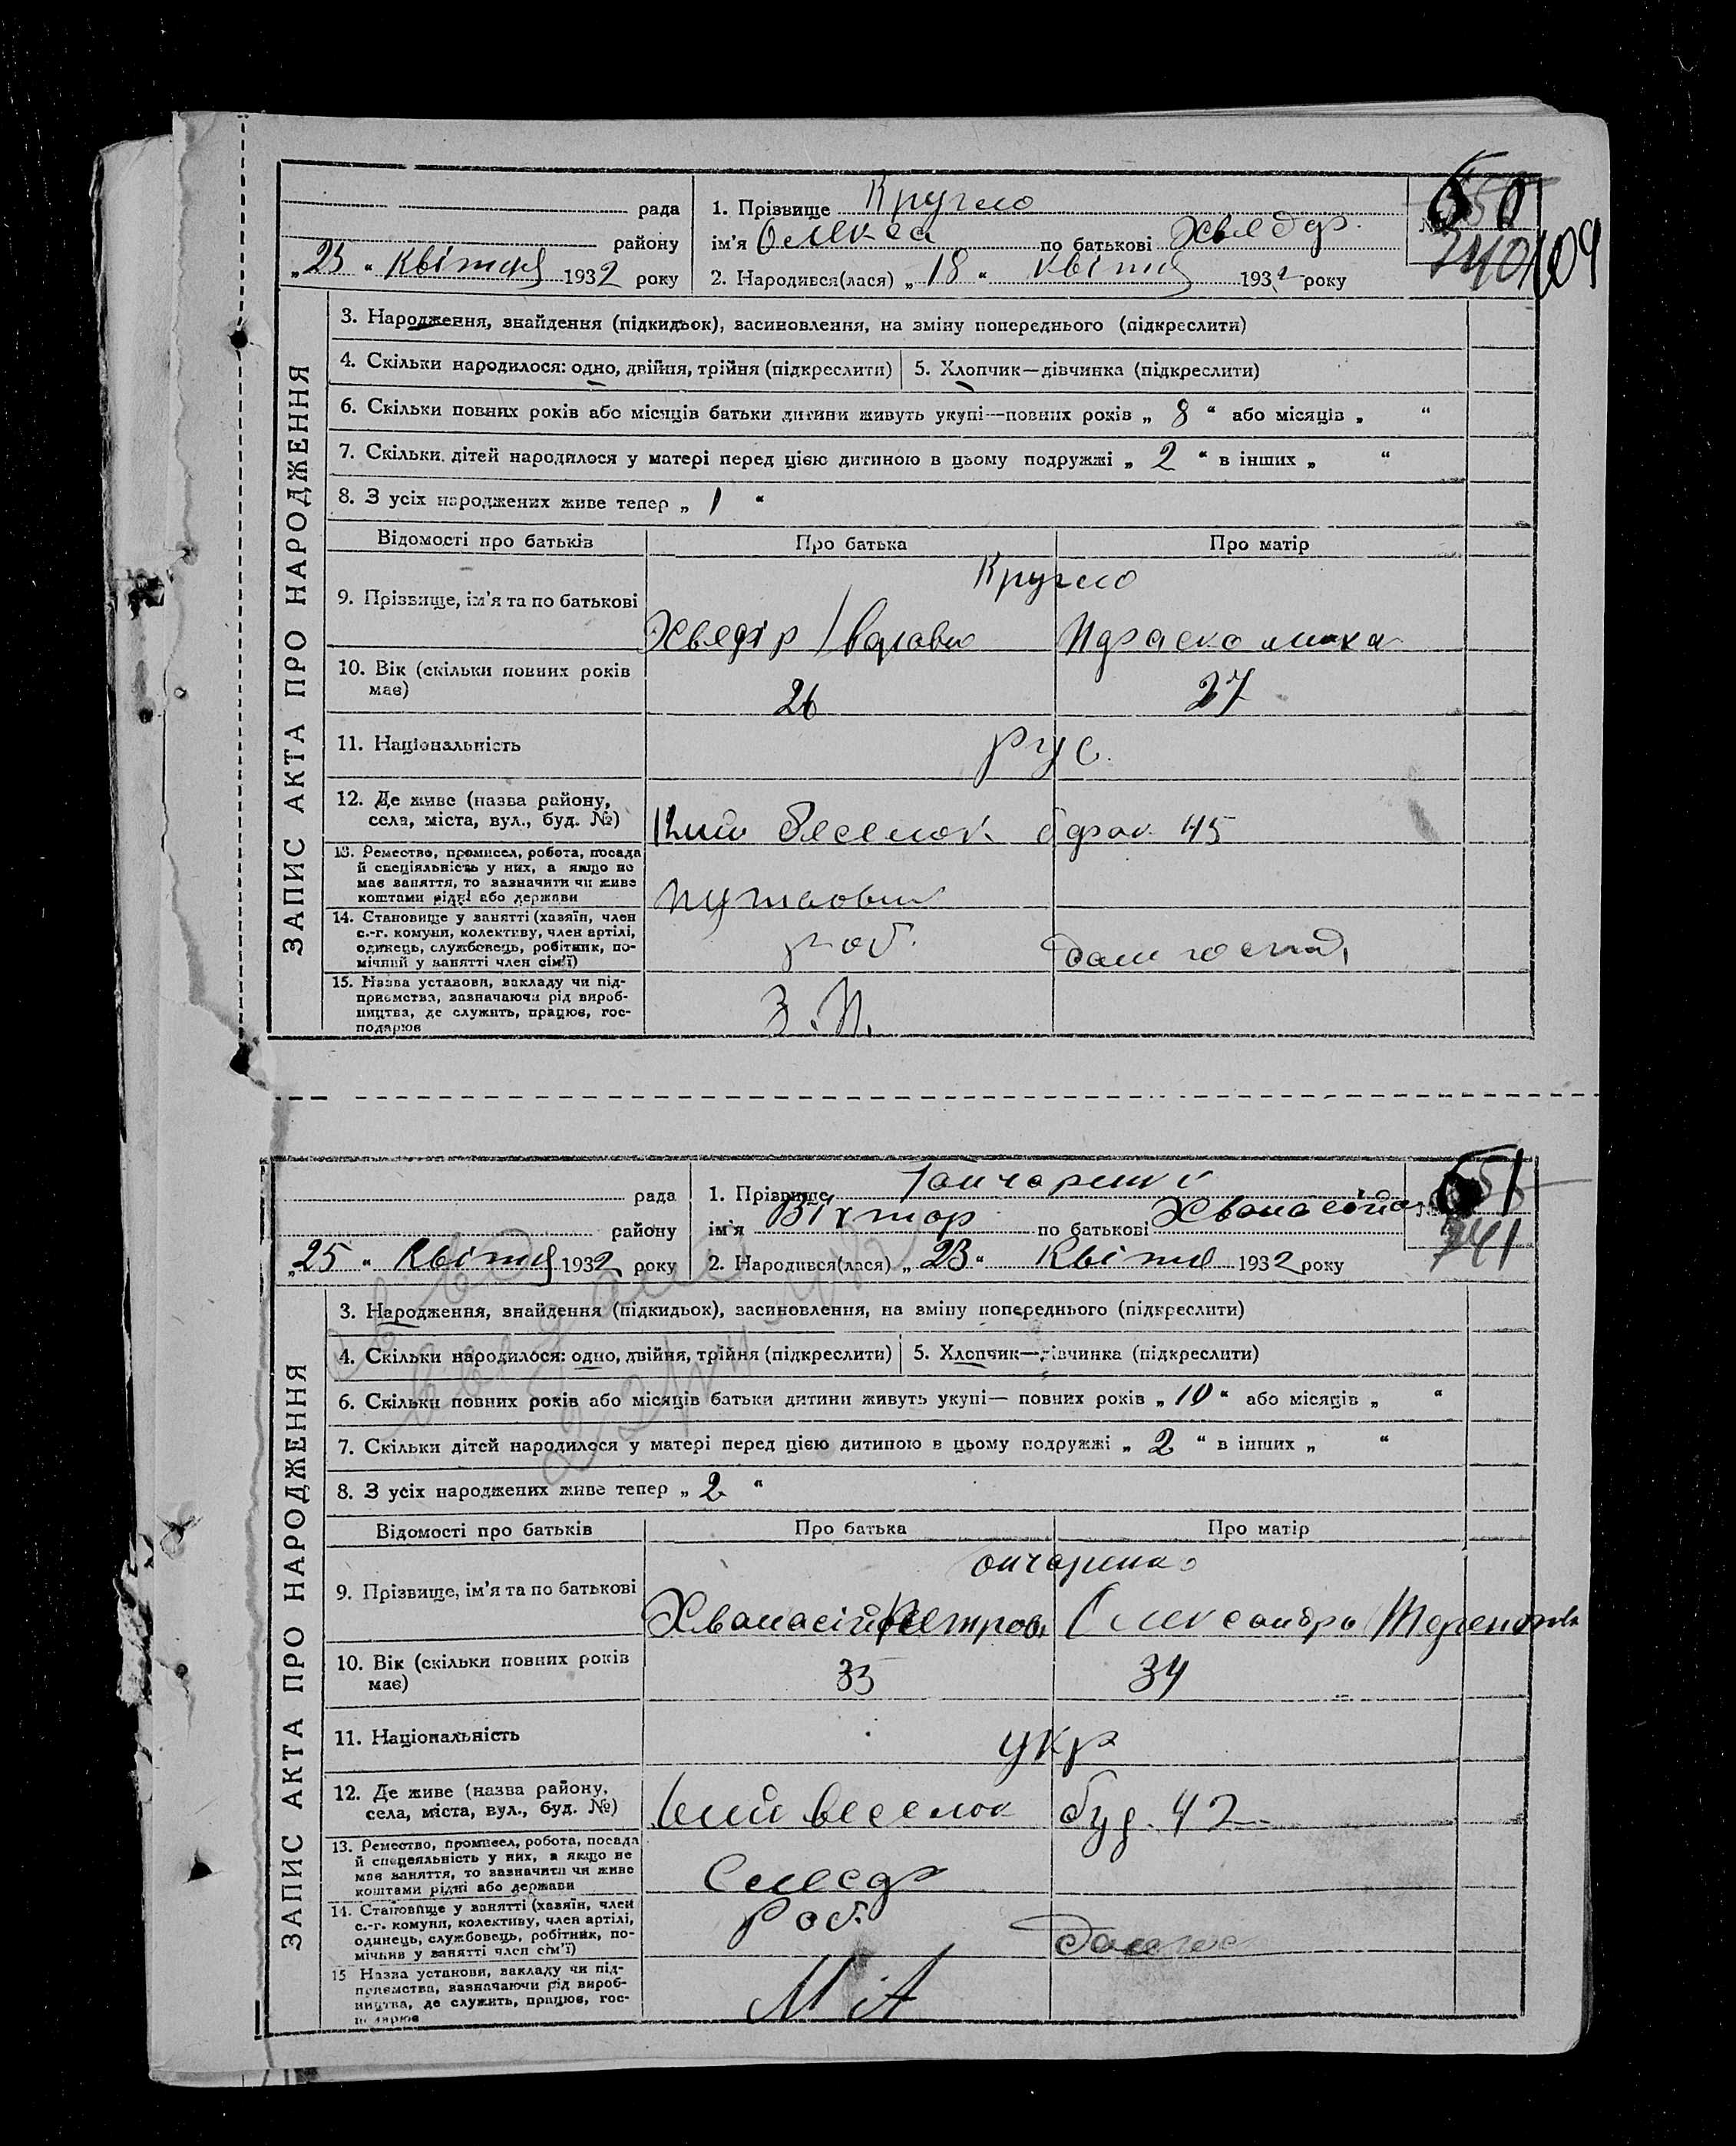 рада
району
„25" Квітня 1932 року
1. Прізвище Кругло
ім'я Олекса по батькові Хведор.
2. Народився(лася) „18" квітня 1932 року
№
740
109
ЗАПИС АКТА ПРО НАРОДЖЕННЯ
3. Народження, знайдення (підкидьок), засиновлення, на зміну попереднього (підкреслити)
4. Скільки народилося: одно, двійня, трійня (підкреслити) 5. Хлопчик—дівчинка (підкреслити)
6. Скільки повних років або місяців батьки дитини живуть укупі—повних років „8" або місяців „ "
7. Скільки дітей народилося у матері перед цією дитиною в цьому подружжі „2" в інших „ "
8. З усіх народжених живе тепер „1"
Відомості про батьків Про батька Про матір
Кругло
9. Прізвище, ім'я та по батькові Хведір
10. Вік (скільки повних років має) 26 27
11. Національність рус.
12. Де живе (назва району, села, міста, вул., буд. №) 45
13. Ремество, промисел, робота, посада
й спеціяльність у них, а якщо не
має заняття, то зазначити чи живе
коштами рідні або держави
14. Становище у занятті (хазяїн, член
с.-г. комуни, колективу, член артілі,
одинець, службовець, робітник, по-
мічний у занятті член сім'ї)
роб.
15. Назва установи, закладу чи під-
приємства, зазначаючи рід вироб-
ництва, де служить, працює, гос-
подарює
З.П.
рада
району
„25" Квітня 1932 року
1. Прізвище Гончаренко
ім'я Віктор по батькові
2. Народився(лася) „23" Квітня 1932 року
651
741
ЗАПИС АКТА ПРО НАРОДЖЕННЯ
3. Народження, знайдення (підкидьок), засиновлення, на зміну попереднього (підкреслити)
4. Скільки народилося: одно, двійня, трійня (підкреслити) 5. Хлопчик—дівчинка (підкреслити)
6. Скільки повних років або місяців батьки дитини живуть укупі— повних років „10" або місяців „ "
7. Скільки дітей народилося у матері перед цією дитиною в цьому подружжі „2" в інших „ "
8. З усіх народжених живе тепер „2"
Відомості про батьків Про батька Про матір
ончаренко
9. Прізвище, ім'я та по батькові Хванасій Петров. Олександра
10. Вік (скільки повних років має) 35 34
11. Національність укр
12. Де живе (назва району, села, міста, вул., буд. №) буд. 42
13. Ремество, промисел, робота, посада
й спеціяльність у них, а якщо не
має заняття, то зазначити чи живе
коштами рідні або держави
Слюсар
14. Становище у занятті (хазяїн, член
с.-г. комуни, колективу, член артілі,
одинець, службовець, робітник, по-
мічний у занятті член сім'ї)
роб.
15 Назва установи, закладу чи під-
приємства, зазначаючи рід вироб-
ництва, де служить, працює, гос-
подарює